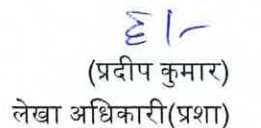 ह/-
(प्रदीप कुमार)
लेखा अधिकारी(प्रशा)